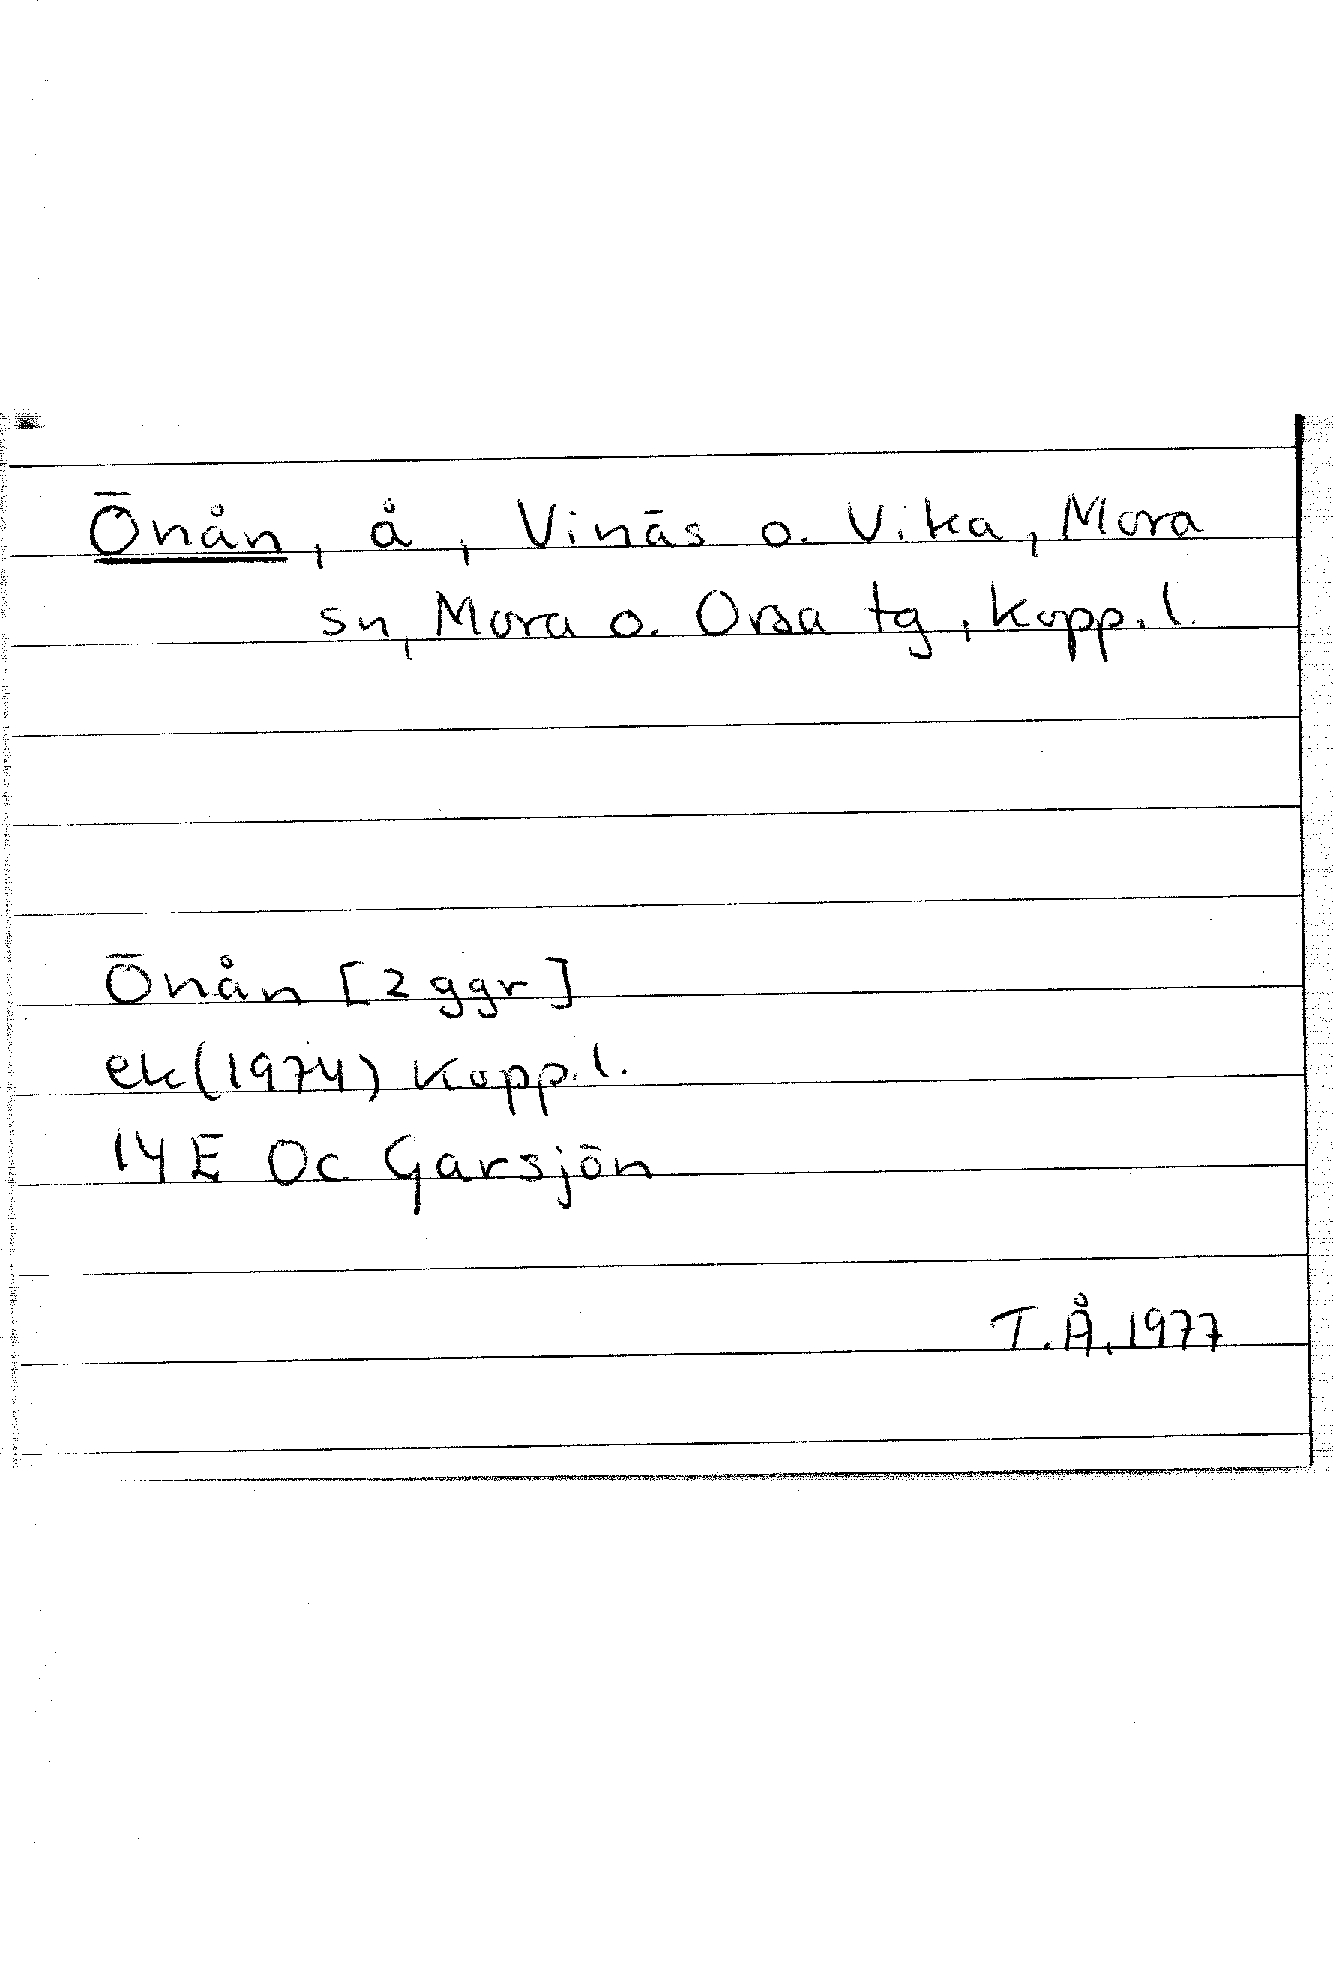 Önån, å, Vinäs o. Vika, Mora
sn, Mora o. Orsa tg, Kopp. l.
Önån [2 ggr]
ek (1974) Kopp. l.
14 E Oc Garsjön
T. Å. 1977